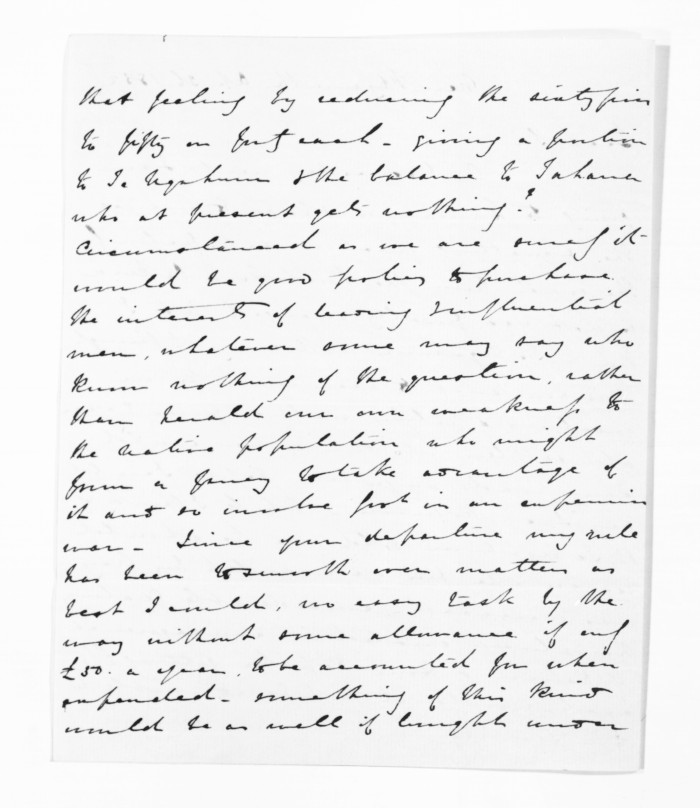 that feeling by reducing the sixty five
to fifty or forty each - giving a portion
to Te Ngahuru & the balance to Tahana
who at present gets nothing.?
Circumstanced as we are surely it
would be good policy to purchase
the interests of leading & influential
men, whatever some may say who
know nothing of the question, rather
than herald our own weakness to
the native population who might
form a fancy to take advantage of
it and so involve Govt in an expensive
war - Since your departure my rule
has been to smooth over matters as
best I could, no easy task by the
way without some allowance if only
£50. a year, to be accounted for when
expended - something of this kind
would be as well if brought under